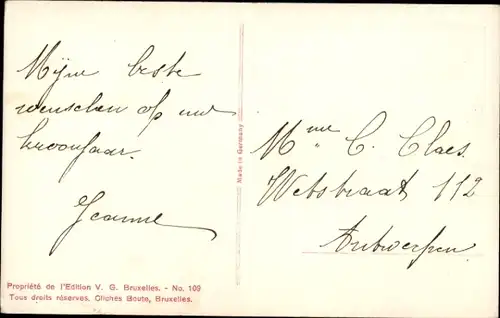 Mijne beste
wenschen op uw
kroonjaar.
Jeanne
Made in Germany
Mme C. Claes.
Wetstraat 112
Antwerpen
Propriété de l'Edition V. G. Bruxelles. - No. 109
Tous droits réservés. Clichés Boute, Bruxelles.